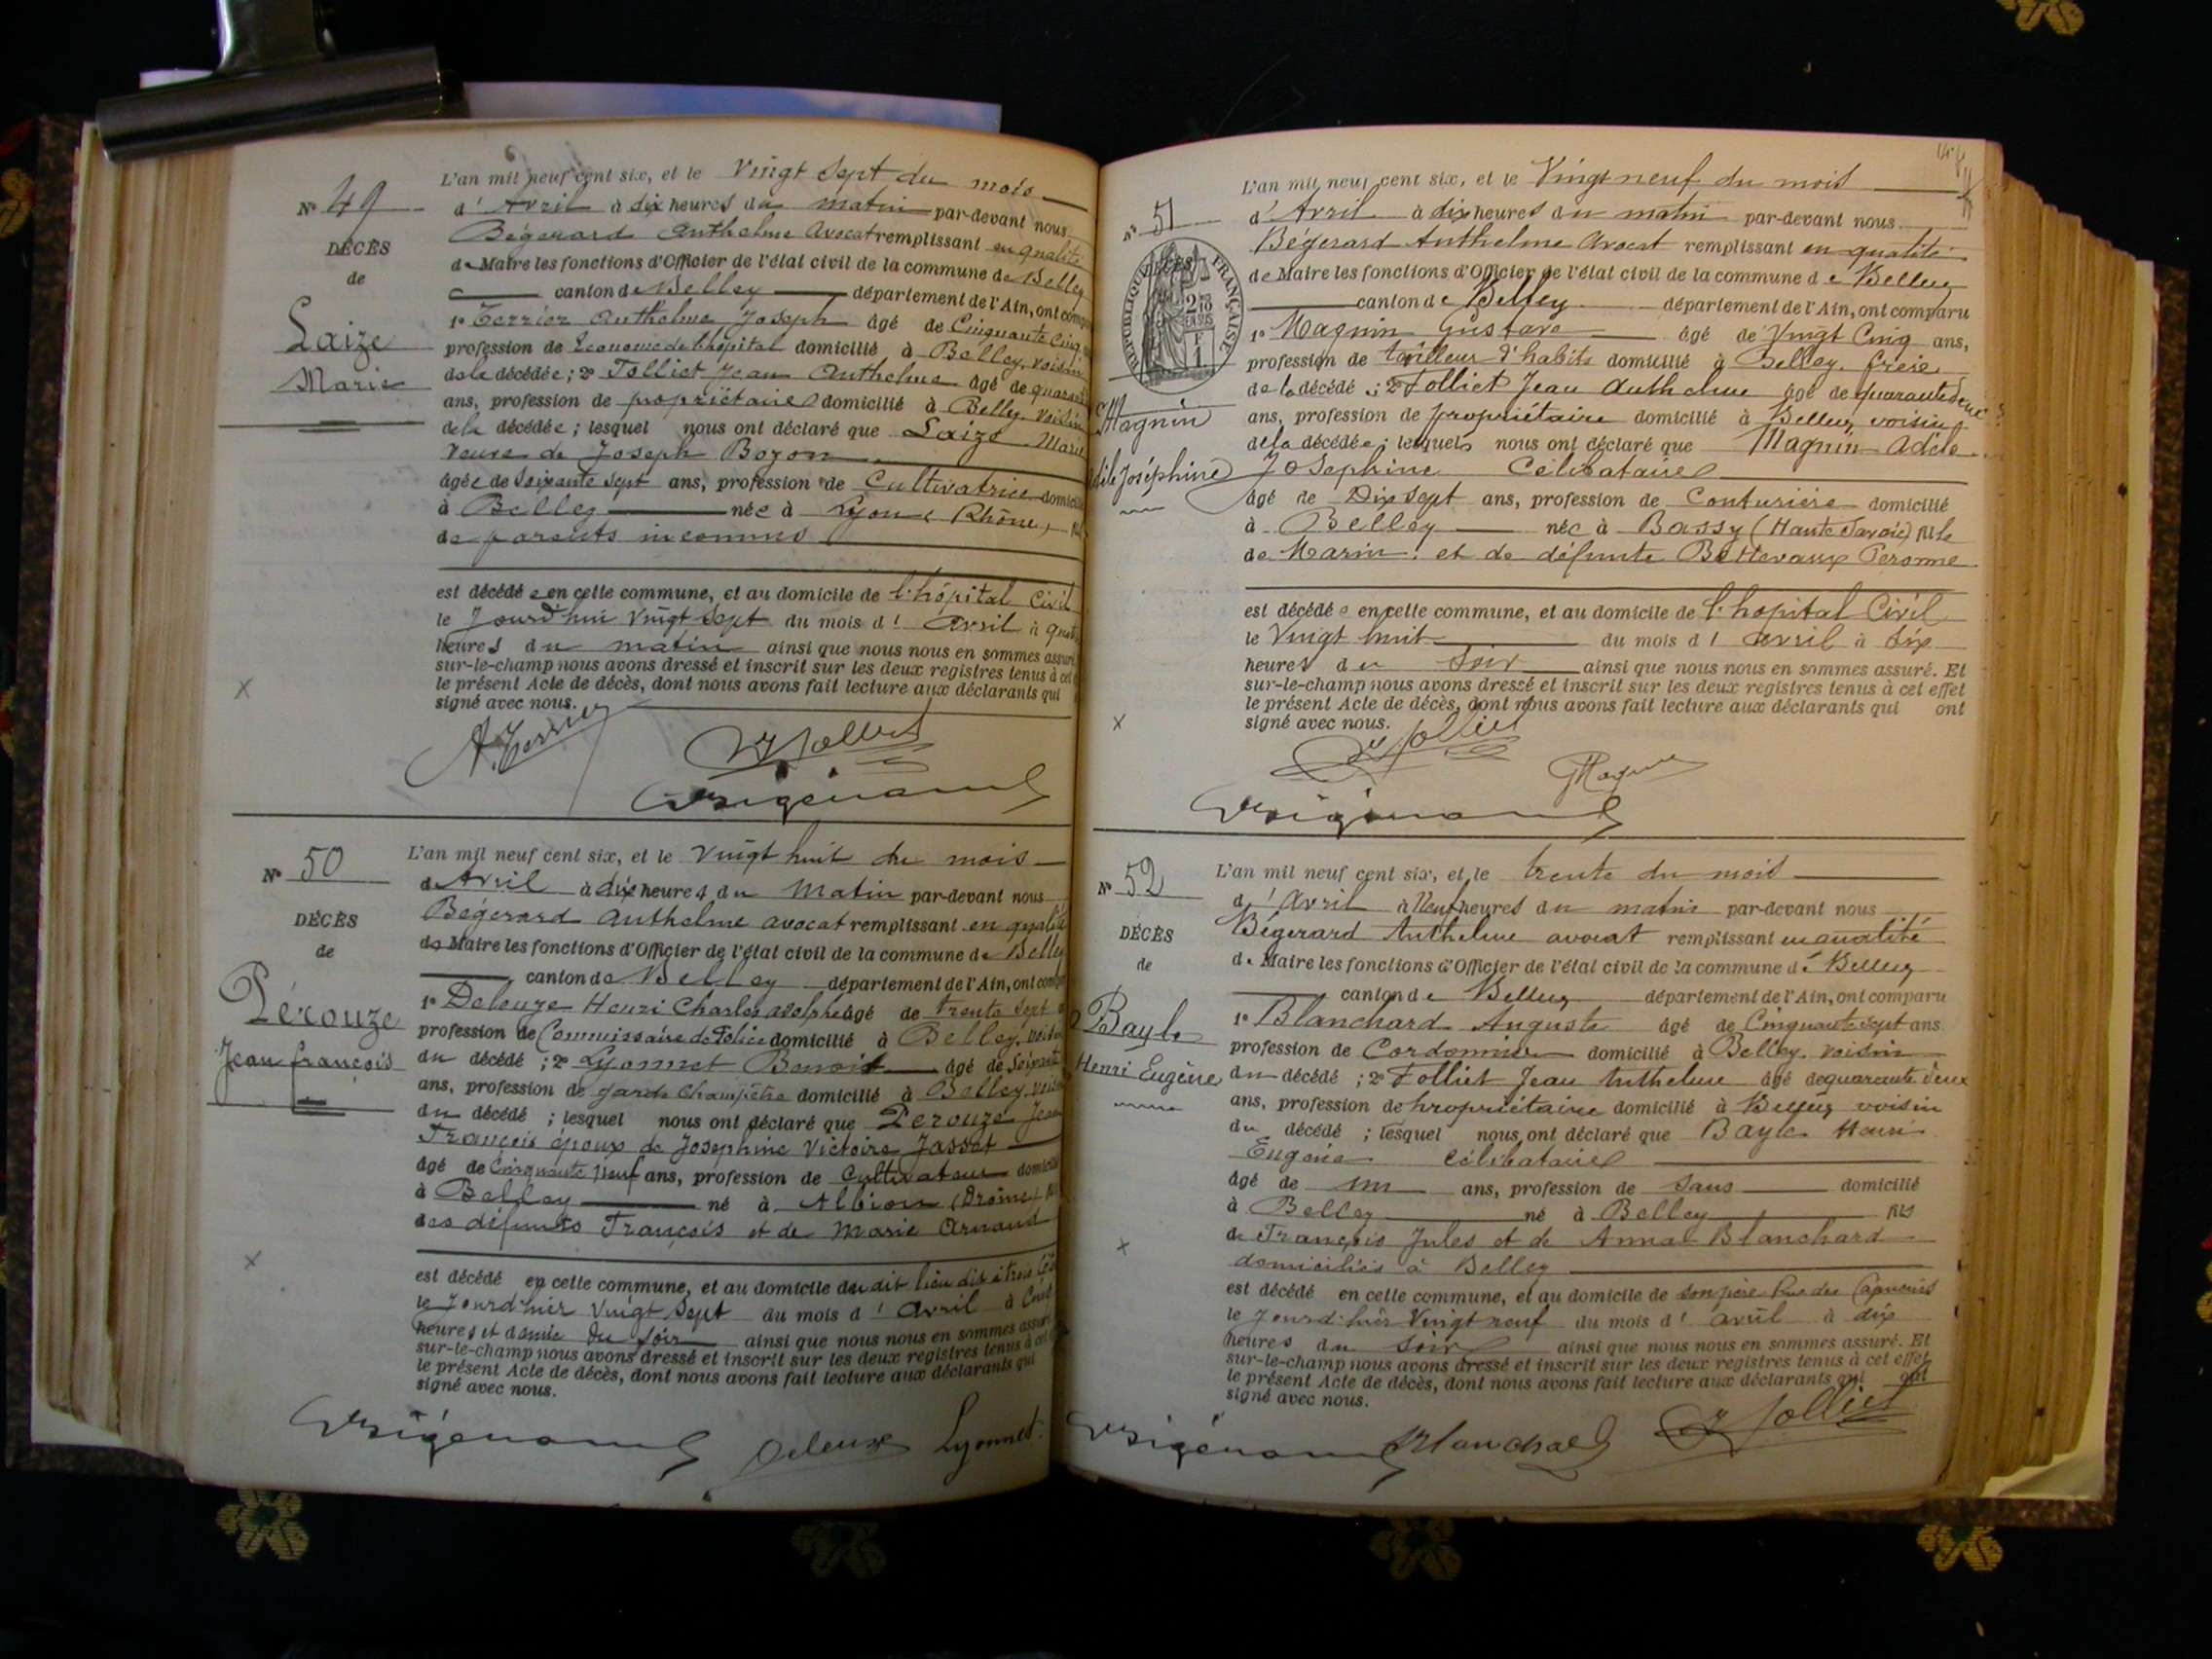 N° 49
DÉCÈS
de
Laize
Marie
L'an mil neuf cent six, et le Vingt Sept du mois
d' Avril à dix heures du matin par-devant nous
Bégerard Anthelme Avocat remplissant en qualité
de Maire les fonctions d'Officier de l'état civil de la commune de Belley
canton de Belley département de l'Ain, ont
1° Terrier Anthelme Joseph âgé de Cinquante Cinq
profession de Econome de l'hôpital domicilié à Belley, voisin
de la décédée; 2° Folliet Jean Anthelme âgé de
ans, profession de propriétaire domicilié à Belley, voisin
de la décédée; lesquel nous ont déclaré que Laize Marie
Veuve de Joseph Bozon
âgée de Soixante sept ans, profession de Cultivatrice
à Belley née à Lyon (Rhône)
de parents inconnus
est décédée en cette commune, et au domicile de l'hôpital Civil
le Jourd'hui Vingt Sept du mois d' Avril à
heures du matin ainsi que nous nous en sommes assuré
sur-le-champ nous avons dressé et inscrit sur les deux registres tenus à cet
le présent Acte de décès, dont nous avons fait lecture aux déclarants qui
signé avec nous.
A. Terrier
Folliet
N° 50
DÉCÈS
de
Pérouze
Jean françois
L'an mil neuf cent six, et le Vingt huit du mois
d' Avril à dix heures du Matin par-devant nous
Bégerard Anthelme avocat remplissant en qualité
de Maire les fonctions d'Officier de l'état civil de la commune de Belley
canton de Belley département de l'Ain, ont
1° Deleuze Henri Charles Adolphe âgé de trente sept
profession de Commissaire de Police domicilié à Belley, voisin
du décédé; 2° Lyonnet Benoit âgé de
ans, profession de garde champêtre domicilié à Belley, voisin
du décédé; lesquel nous ont déclaré que Perouze Jean
François époux de Josephine Victoire Jasset
âgé de Cinquante Neuf ans, profession de Cultivateur
à Belley né à Albion (Drôme)
des défunts François et de Marie Arnaud
est décédé en cette commune, et au domicile du dit lieu dit
le Jourd'hier Vingt Sept du mois d' Avril à Cinq
heures et demie du soir ainsi que nous nous en sommes assuré
sur-le-champ nous avons dressé et inscrit sur les deux registres tenus à cet
le présent Acte de décès, dont nous avons fait lecture aux déclarants qui
signé avec nous.
Deleuze
Lyonnet
N° 51
DÉCÈS
RÉPUBLIQUE FRANÇAISE
Magnin
Adèle Joséphine
L'an mil neuf cent six, et le Vingt neuf du mois
d' Avril à dix heures du matin par-devant nous
Bégerard Anthelme Avocat remplissant en qualité
de Maire les fonctions d'Officier de l'état civil de la commune de Belley
canton de Belley département de l'Ain, ont comparu
1° Magnin Gustave âgé de Vingt Cinq ans,
profession de tailleur d'habits domicilié à Belley, frère
de la décédé; 2° Folliet Jean Anthelme âgé de quarante deux
ans, profession de propriétaire domicilié à Belley, voisin
de la décédée; lesquels nous ont déclaré que Magnin Adèle
Josephine Célibataire
âgé de Dix sept ans, profession de Couturière domicilié
à Belley née à Bassy (Haute Savoie) fille
de Marin et de défunte Bottevaux Peronne
est décédée en cette commune, et au domicile de l'hopital Civil
le Vingt huit du mois d' avril à six
heures du Soir ainsi que nous nous en sommes assuré. Et
sur-le-champ nous avons dressé et inscrit sur les deux registres tenus à cet effet
le présent Acte de décès, dont nous avons fait lecture aux déclarants qui ont
signé avec nous.
Folliet
GMagnin
N° 52
DÉCÈS
de
Bayle
Henri Eugène
L'an mil neuf cent six, et le trente du mois
d' Avril à Neuf heures du matin par-devant nous
Bégerard Anthelme avocat remplissant en qualité
de Maire les fonctions d'Officier de l'état civil de la commune de Belley
canton de Belley département de l'Ain, ont comparu
1° Blanchard Auguste âgé de Cinquante sept ans
profession de Cordonnier domicilié à Belley, voisin
du décédé; 2° Folliet Jean Anthelme âgé de quarante deux
ans, profession de propriétaire domicilié à Belley voisin
du décédé; lesquel nous ont déclaré que Bayle Henri
Eugène célibataire
âgé de un ans, profession de Sans domicilié
à Belley né à Belley fils
de François Jules et de Anna Blanchard
domiciliés à Belley
est décédé en cette commune, et au domicile de son père Rue des Capucins
le Jourd'hier Vingt neuf du mois d' avril à dix
heures du soir ainsi que nous nous en sommes assuré. Et
sur-le-champ nous avons dressé et inscrit sur les deux registres tenus à cet effet
le présent Acte de décès, dont nous avons fait lecture aux déclarants qui ont
signé avec nous.
Blanchard
Folliet